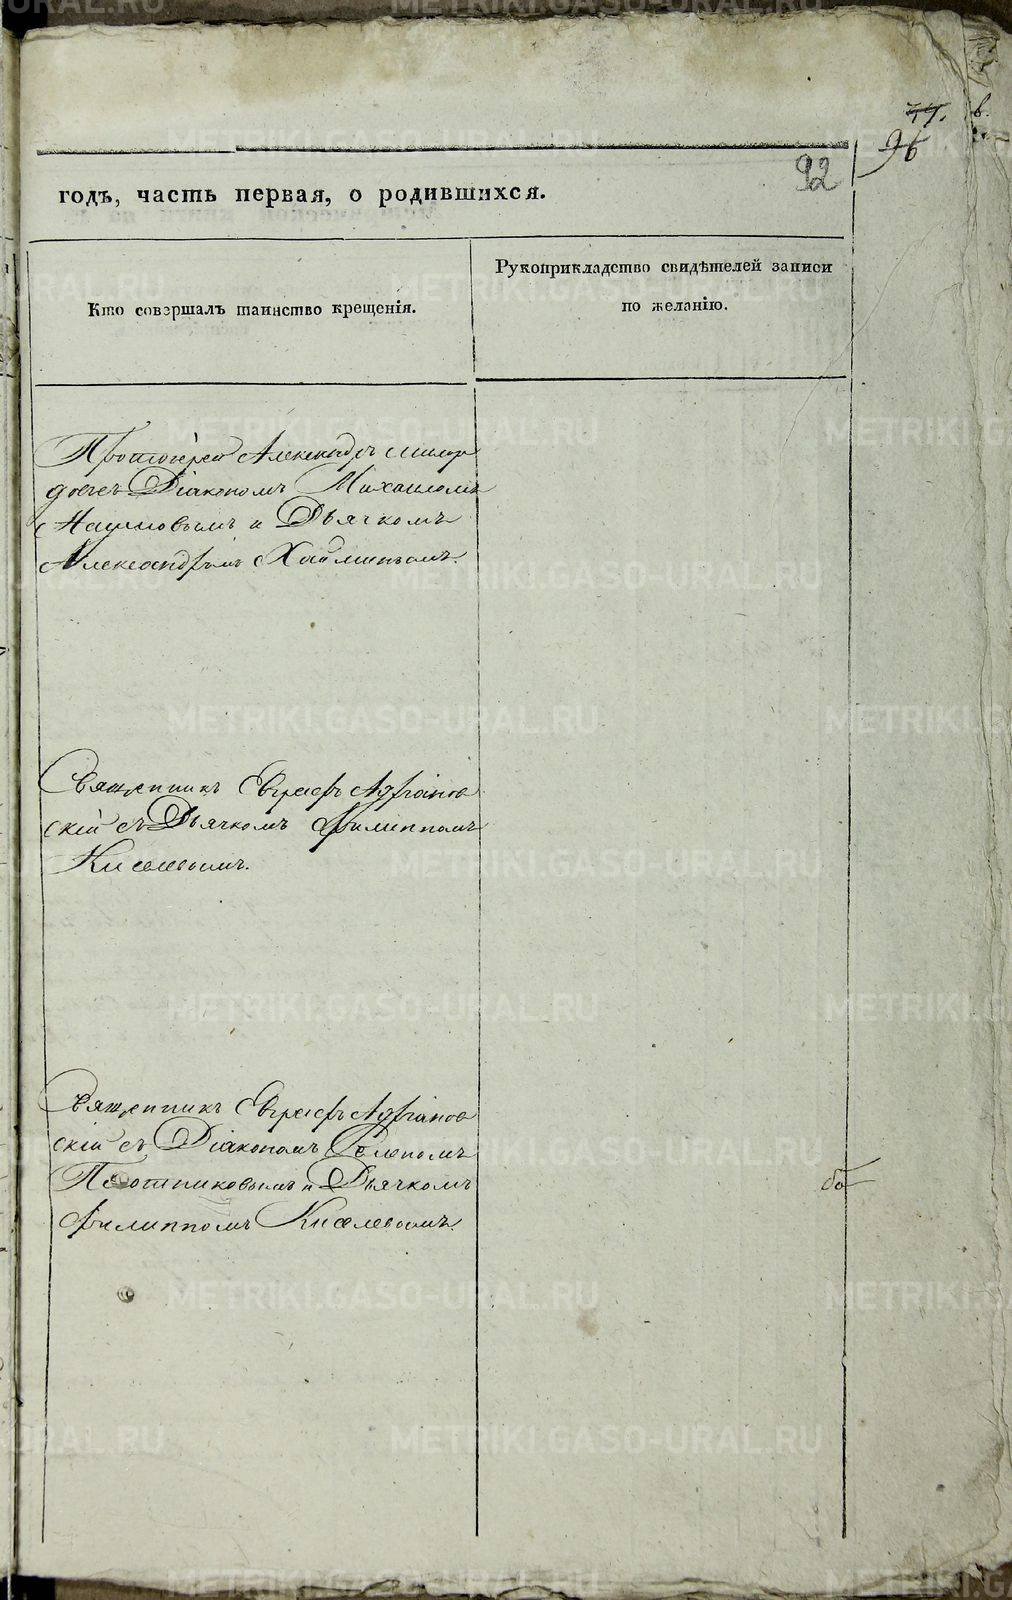 96
92
годъ, часть первая, о родившихся.
Кто совершалъ таинство крещенія.
Рукоприкладство свидѣтелей записи
по желанію.
Протоіерей Александръ Милор
Діакономъ Михаиломъ
Наумовымъ и Дьячкомъ
Александромъ
Священникъ Евграфъ Адріанов
скій съ Дьячкомъ Филиппомъ
Киселевымъ.
Священникъ Евграфъ Адріанов
скій съ Діакономъ
Плотниковымъ и Дьячкомъ
Филиппомъ Киселевымъ.
METRIKI.GASO-URAL.RU